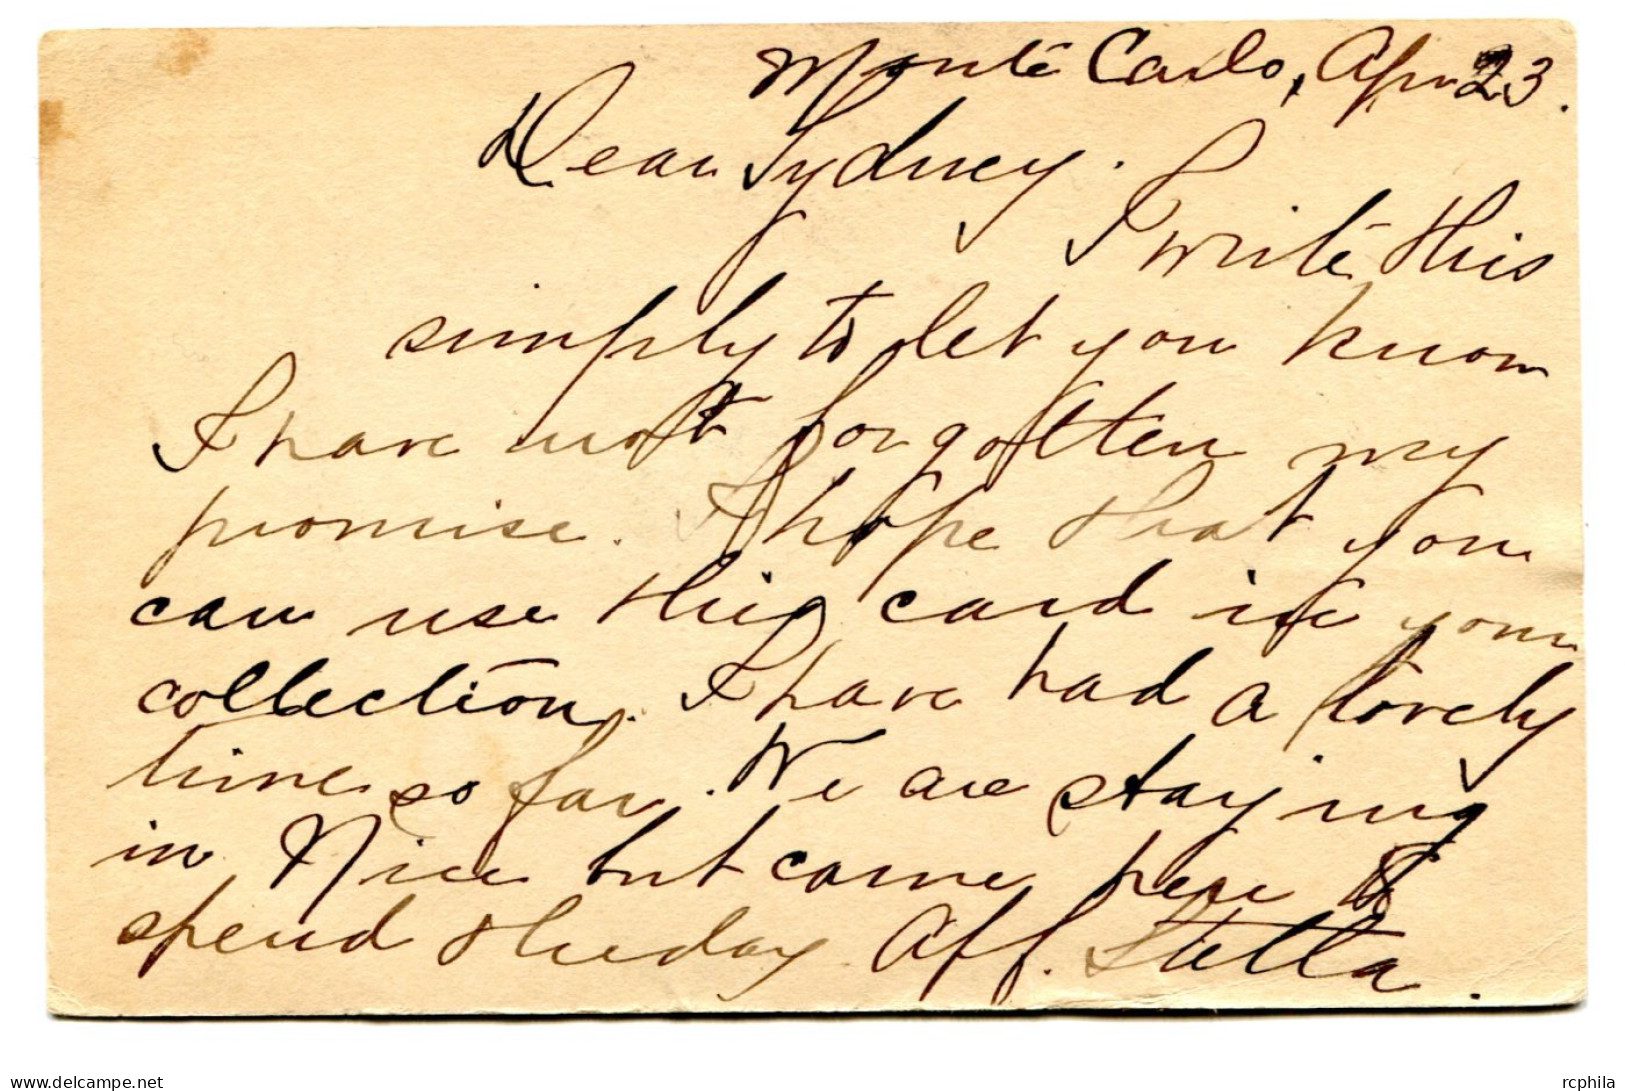 Monte Carlo, Apr 23.
Dear Sydney.
I write this
simply to let you know
I have not forgotten my
promise. I hope that you
can use this card in your
collection. I have had a lovely
time so far. We are staying
in Nice but came here to
spend the day. Aff. Stella.
www.delcampe.net
rcphila